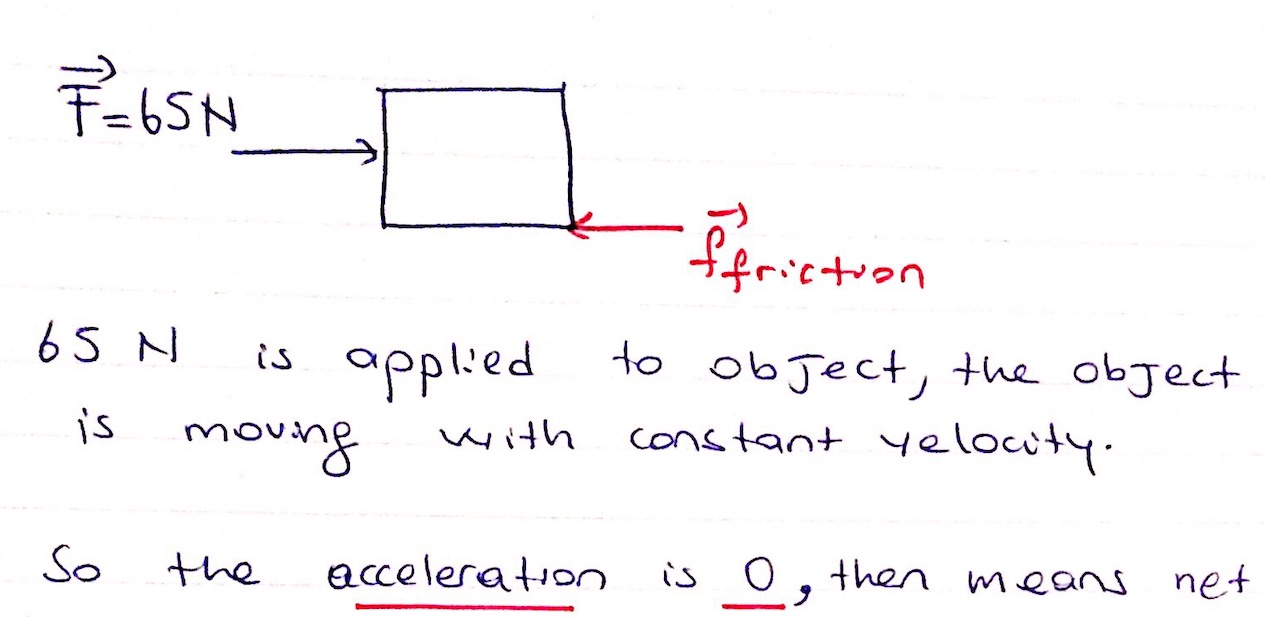 F=65N
f friction
65 N is applied to object, the object
is moving with constant velocity.
So the acceleration is 0, then means net